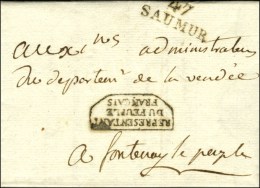 47
SAUMUR
aux x nos administrateurs
du departemt de la vendée
REPRESENTANT
DU PEUPLE
FRANÇAIS
a fontenay le peuple